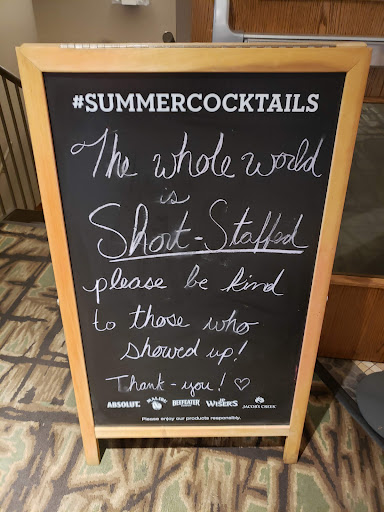 #SUMMERCOCKTAILS
The whole world
is
Short-Staffed
please be kind
to those who
showed up!
Thank-you! ♡
ABSOLUT. MALIBU BEEFEATER J.P. WISER'S JACOB'S CREEK
Please enjoy our products responsibly.